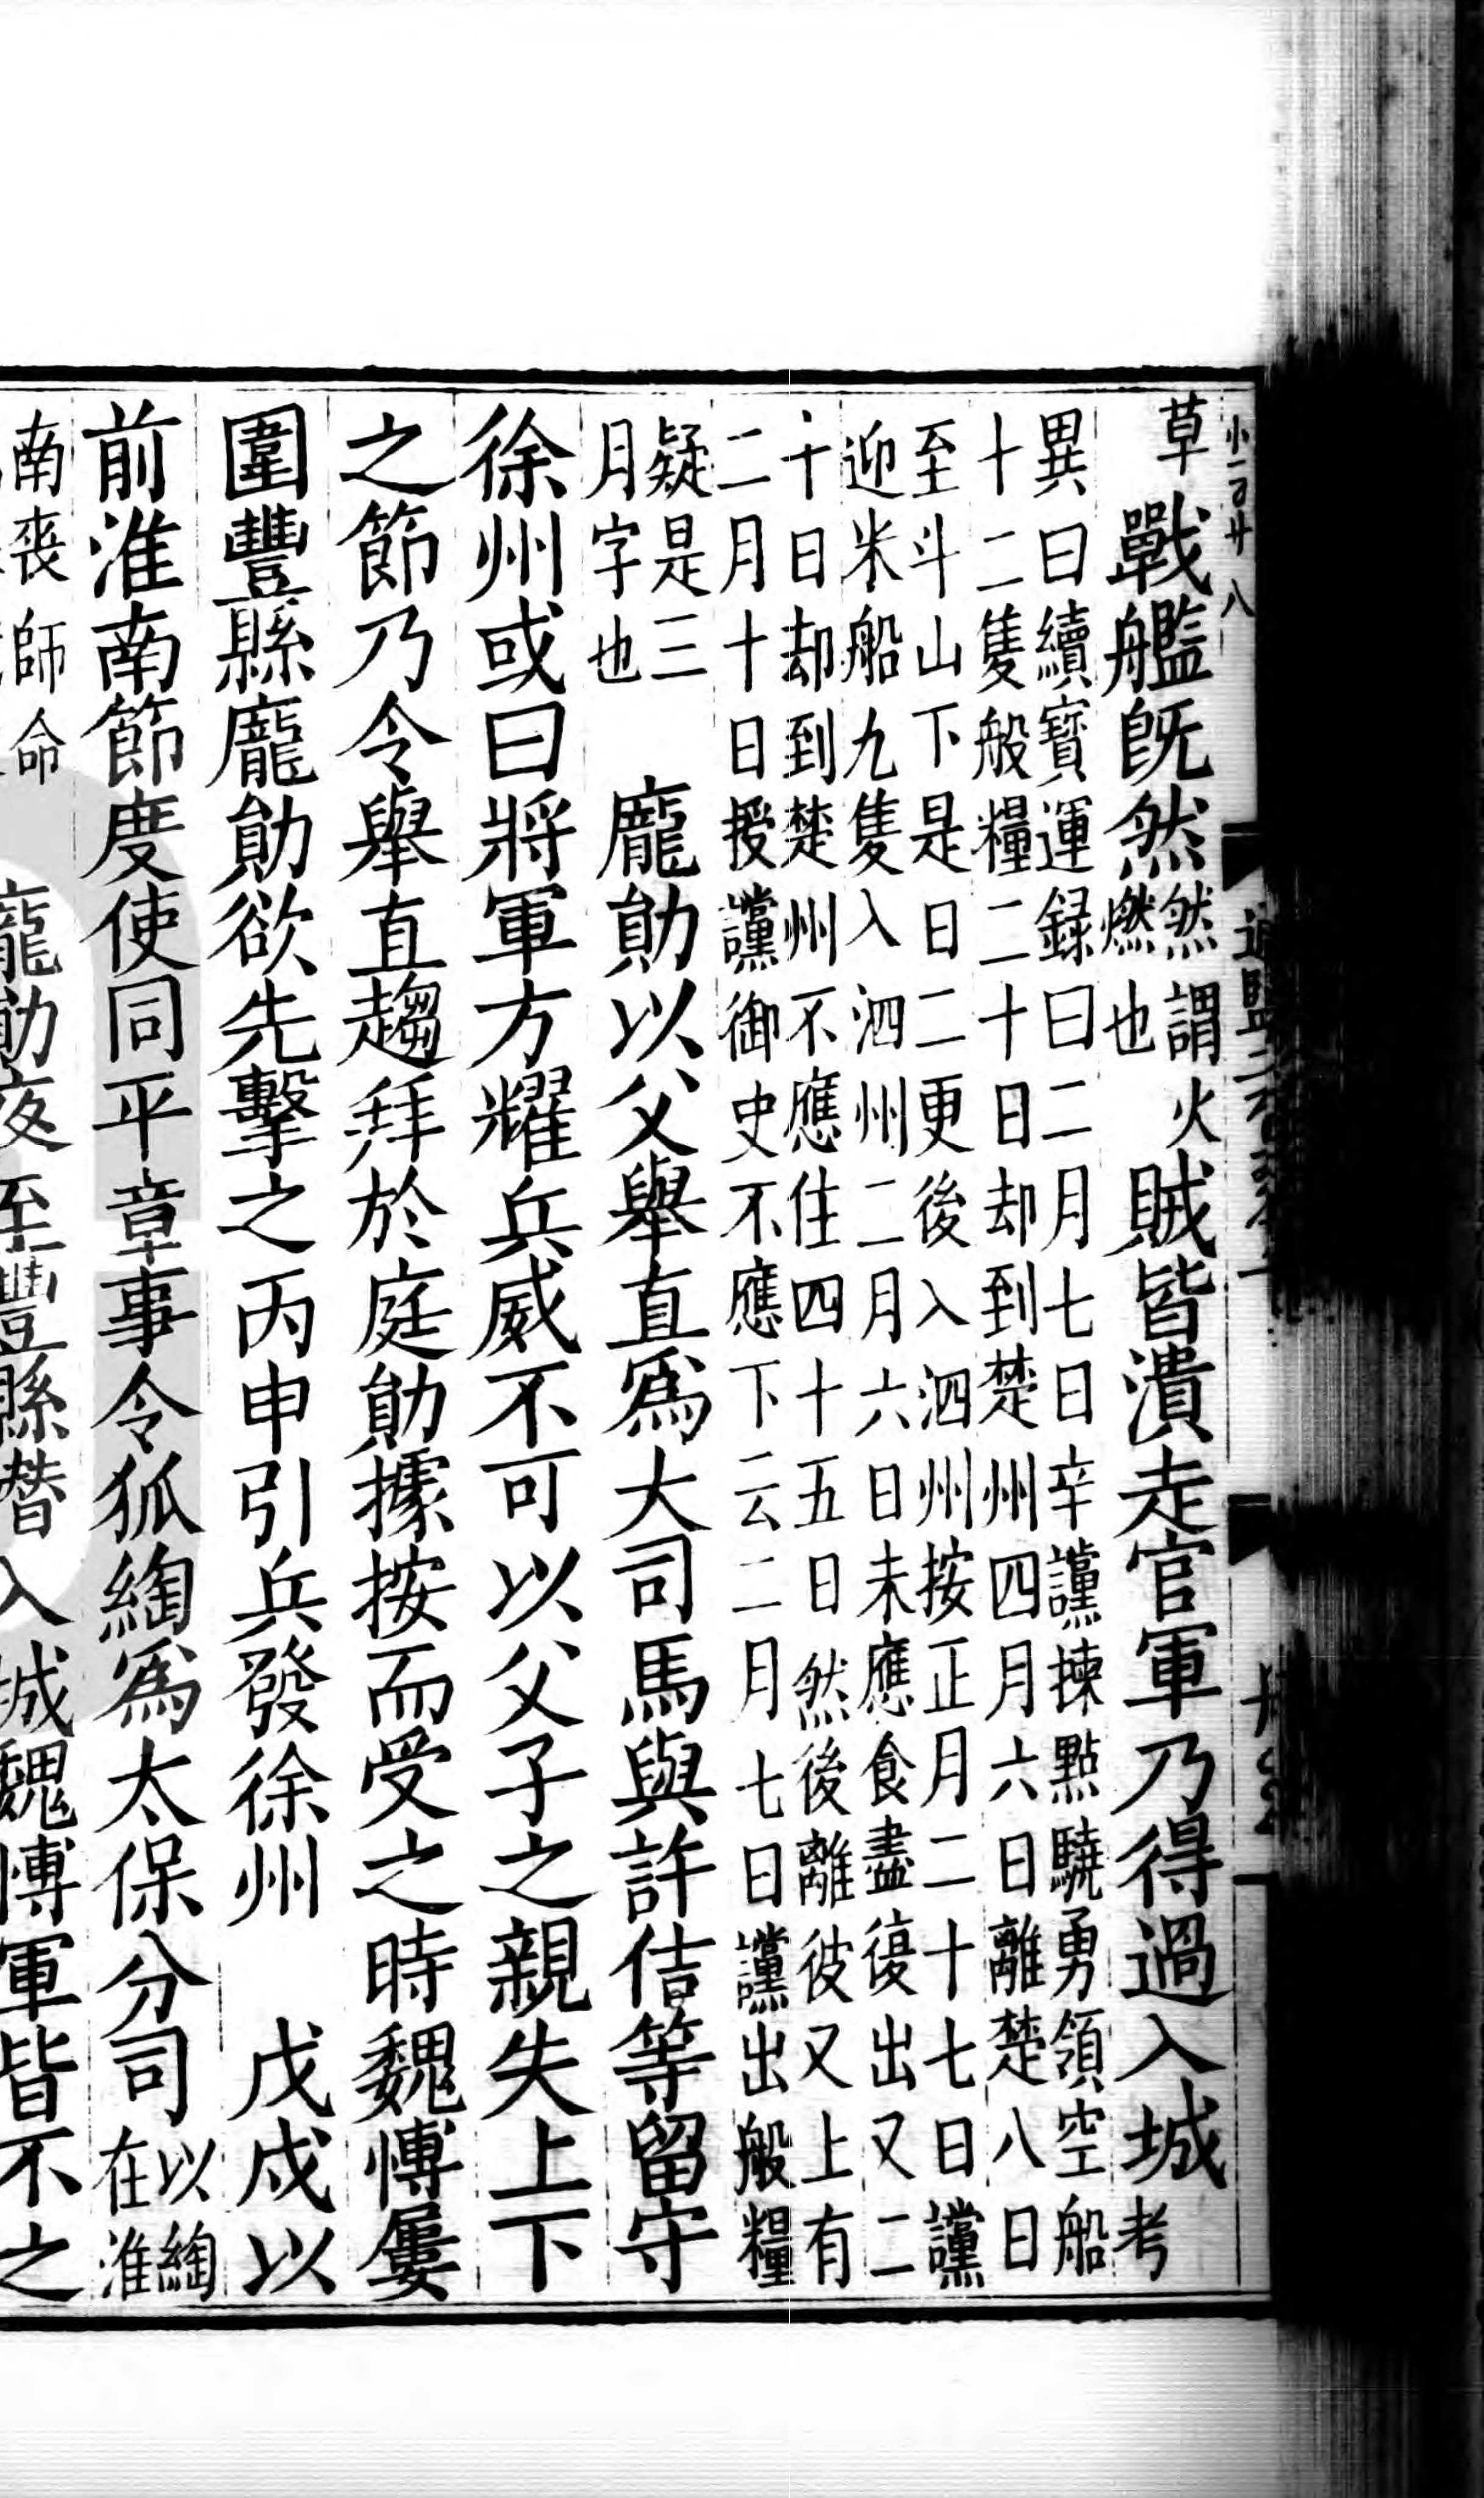 小一百廿八
草戰艦旣然然謂火燃也賊皆潰走官軍乃得過入城考
異曰續寶運録曰二月七日辛讜揀點驍勇領空船
十二隻般糧二十日却到楚州四月六日離楚八日
至斗山下是日二更後入泗州按正月二十七日讜
迎米船九隻入泗州二月六日未應食盡復出又二
十日却到楚州不應住四十五日然後離彼又上有
二月十日授讜御史不應下云二月七日讜出般糧
疑是三月字也 龐勛以父舉直爲大司馬與許佶等留守
徐州或曰將軍方耀兵威不可以父子之親失上下
之節乃令舉直趨拜於庭勛據按而受之時魏博屢
圍豐縣龐勛欲先擊之丙申引兵發徐州 戊戌以
前淮南節度使同平章事令狐綯爲太保分司以綯在淮
南喪師命 龐勛夜至豐縣潛入城魏博軍皆不之